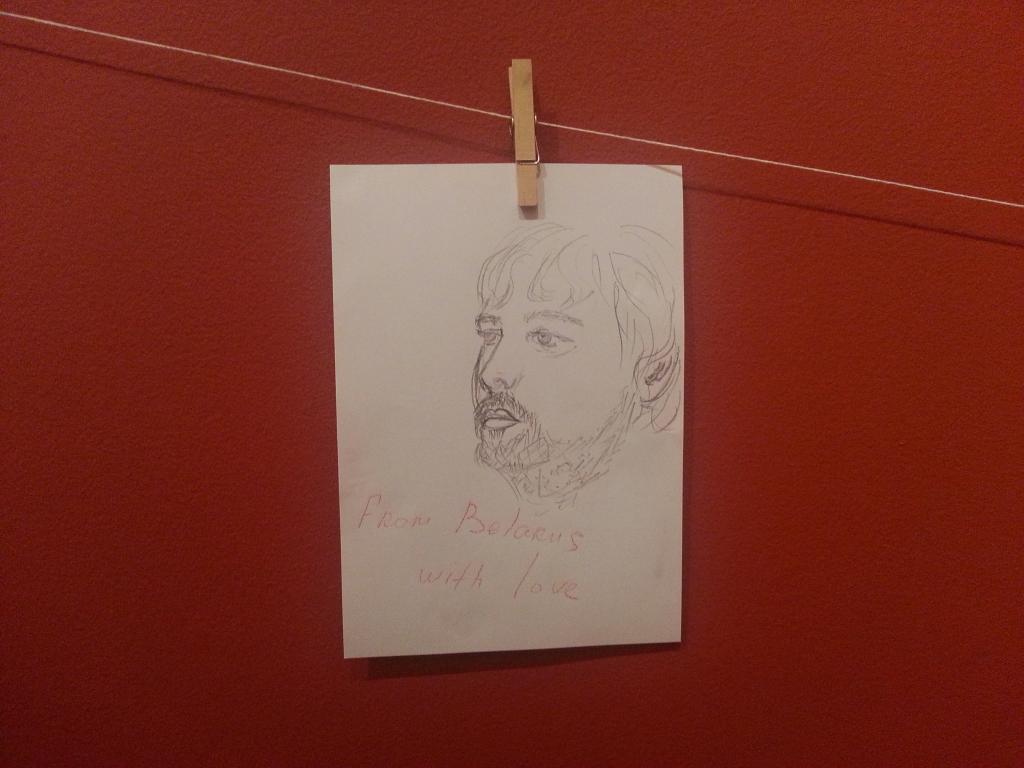 From Belarus
with love